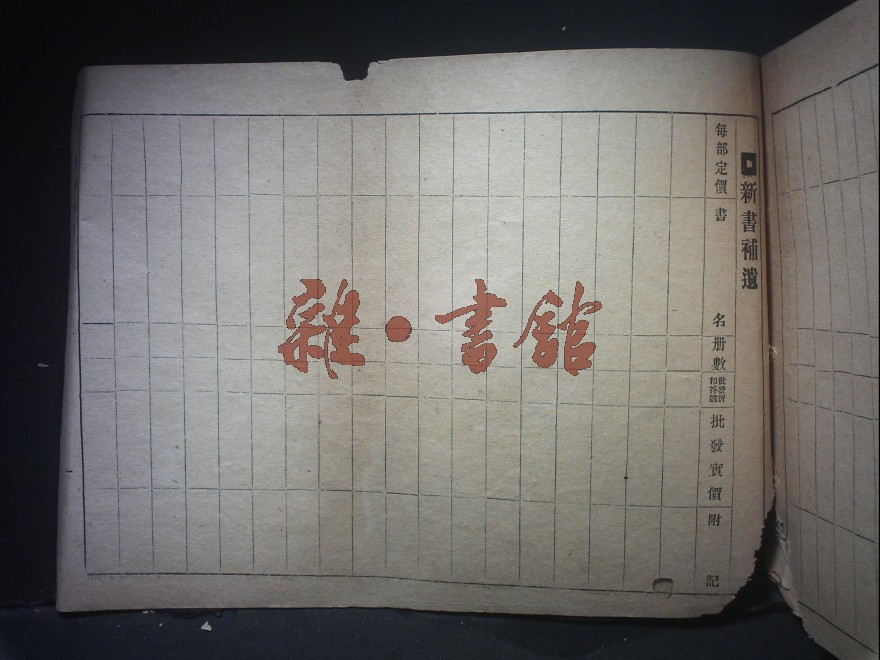 新書補遺
每部定價
書名
册數
批發實價
附記
雜·書館